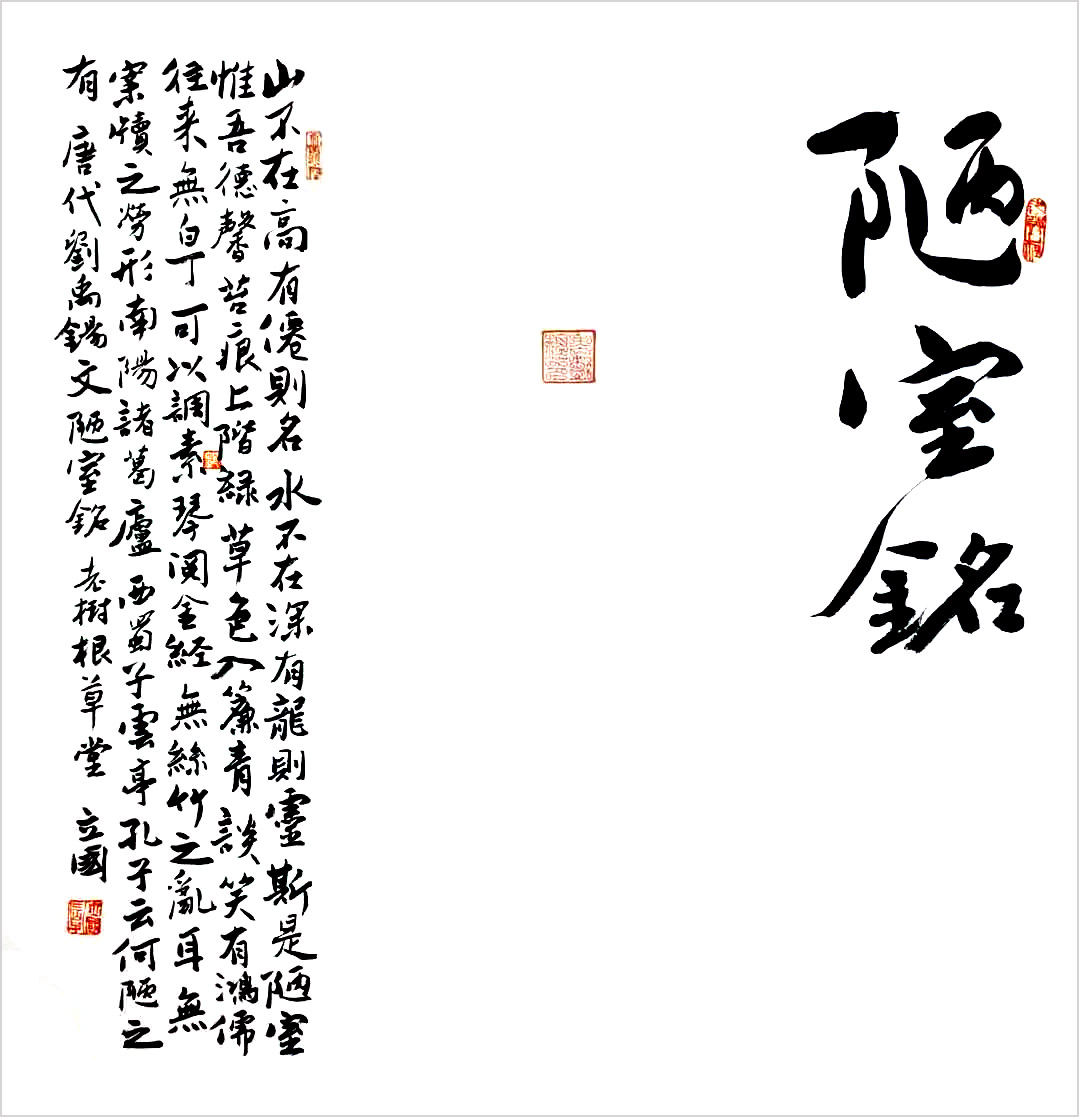 陋室銘
山不在高有僊則名水不在深有龍則靈斯是陋室
惟吾德馨苔痕上階緑草色入簾青談笑有鴻儒
往来無白丁可以調素琴阅金経無絲竹之亂耳無
案牘之勞形南陽諸葛廬西蜀子雲亭孔子云何陋之
有唐代劉禹錫文陋室銘老樹根草堂立國